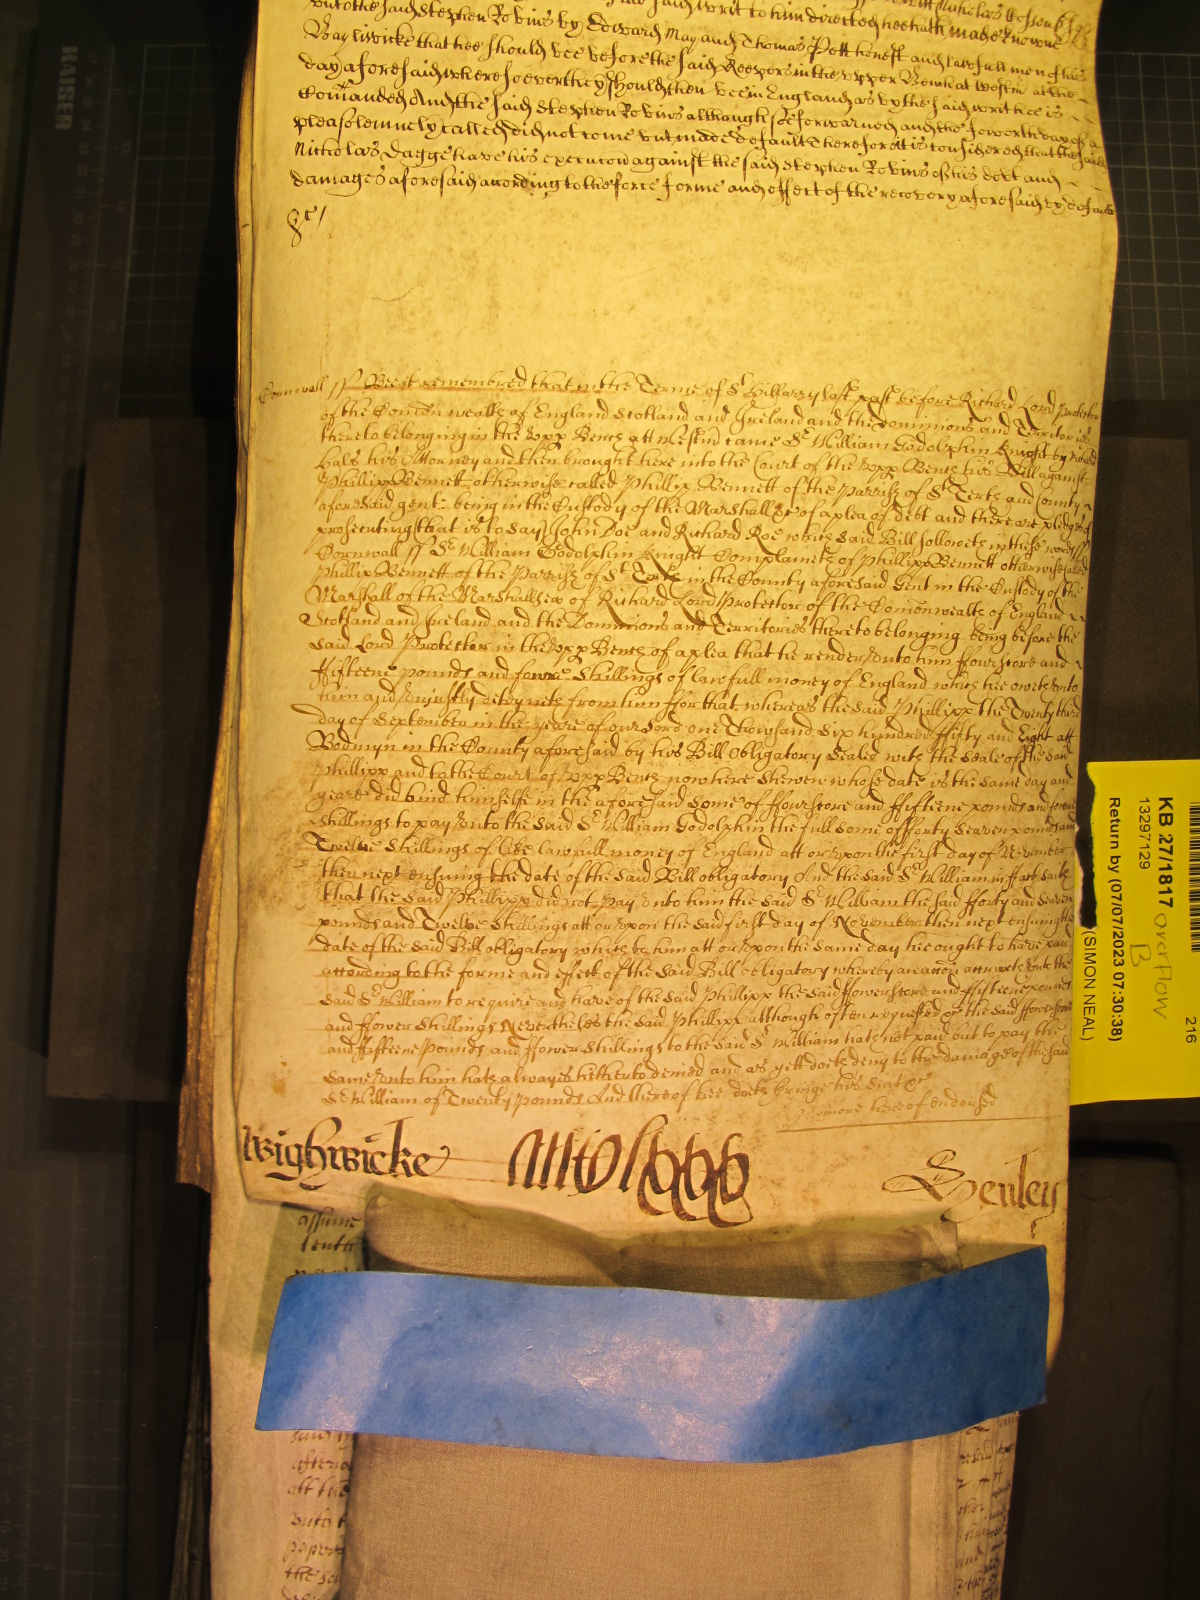 unto the said Stephen Robins by Edward May and Thomas Pott honest and lawfull men of his
Bayliwicke that hee should bee before the said Keepers in the upper Bench at Westm at the
day aforesaid wheresoever they should then bee in England as by the said writ hee is
Comanded And the said Stephen Robins although soe forwarned and the fowerth day of
plea solemnely called did not come but made default Therefore it is considered that the said
Nicholas Dagge have his execucon against the said Stephen Robins of his debt and
damages aforesaid according to the force forme and effect of the recovery aforesaid by default
&c /
Cornwall ss Bee it remembred that in the Terme of St Hillarry last past before Richard Lord Protector
of the Comon wealth of England Scotland and Ireland and the Dominions and Territories
thereto belonging in the upp Bench att Westm came Sr William Godolphin Knight by
Hals his Attorney and then brought here into the Court of the upp Bench his Bill against
Phillipp Bennett otherwise called Phillip Bennett of the Parrish of St and County
aforesaid gent being in the Custody of the Marshall &c of a plea of debt and there are pledges of
prosecuting that is to say John Doe and Richard Roe which said Bill followeth in these words ss
Cornwall ss Sr William Godolphin Knight Complaineth of Phillipp Bennett otherwise called
Phillip Bennett of the Parrish of St in the County aforesaid Gent in the Custody of the
Marshall of the Marshallsea of Richard Lord Protector of the Comonwealth of England
Scotland and Ireland and the Dominions and Territories thereto belonging being before the
said Lord Protector in the upp Bench of a plea that he render unto him ffourscore and
ffifteene pounds and fower Shillings of lawfull money of England which hee oweth unto
him and unjustly deteyneth from him ffor that whereas the said Phillipp the Twenty third
day of September in the yeare of our Lord one Thousand Six hundred ffifty and Eight att
Bodmyn in the County aforesaid by his Bill Obligatory Sealed with the Seale of the said
Phillipp and to the Court of upp Bench now here shewen whose date is the same day and
yeare did bind himselfe in the aforesaid Some of ffourscore and ffifteene pounds and fower
Shillings to pay unto the said Sr William Godolphin the full Some of fforty Seaven pounds and
Twelve Shillings of like lawfull money of England att or upon the first day of November
then next ensuing the date of the said Bill obligatory And the said Sr William in fact saith
that the said Phillipp did not pay unto him the said Sr William the said fforty and Seaven
pounds and Twelve Shillings att or upon the said first day of November then next ensuing the
date of the said Bill obligatory which to him att or upon the same day hee ought to have paid
according to the forme and effect of the said Bill obligatory whereby an accon accrueth unto the
said Sr William to require and have of the said Phillipp the said ffowerscore and ffifteene pounds
and ffower Shillings Neverthelesse the said Phillipp although often requested &c the said ffowerscore
and ffifteene Pounds and ffower Shillings to the said Sr William hath not paid but to pay the
same unto him hath alwayes hitherto denied and as yett doth deny to the damage of the said
Sr William of Twenty pounds And thereof hee doth bringe his suit &c
No more hereof endorsed
Wighwicke
Henley
KAISER
KB 27/1817
overflow
B
13297129
Return by (07/07/2023 07:30:38)
(SIMON NEAL)
216
assume